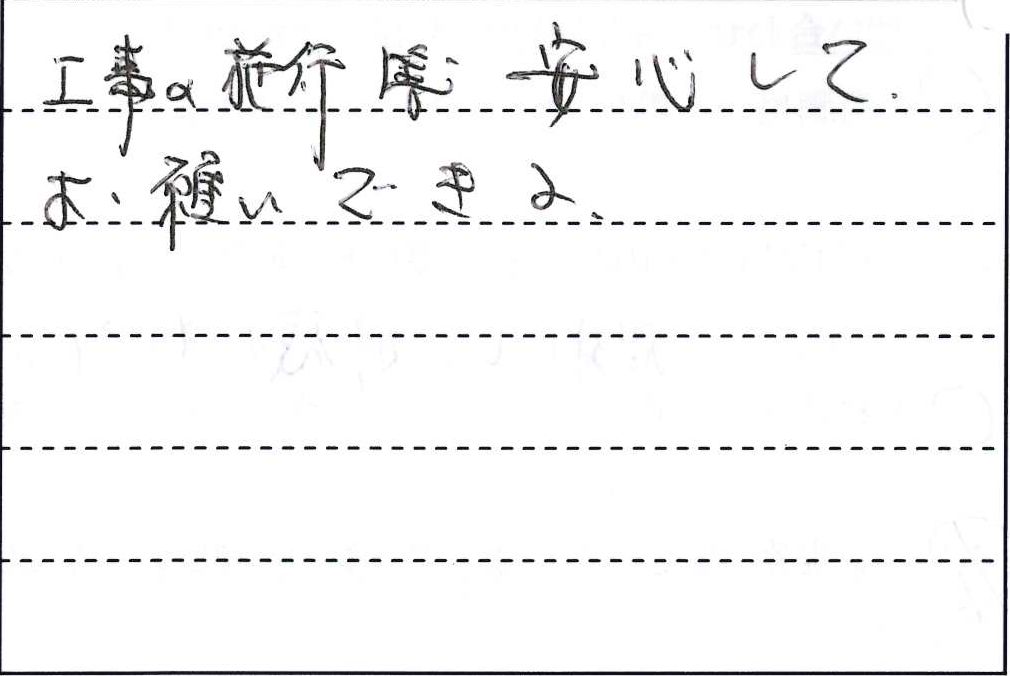 工事の施行は 安心して.
お願いできる.